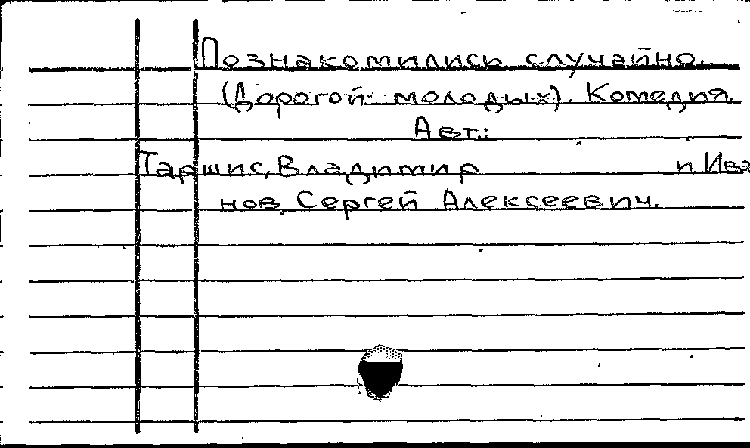 Познакомились случайно.
(Дорогой молодых). Комедия.
Авт.:
Таршис, Владимир и Ива
нов, Сергей Алексеевич.